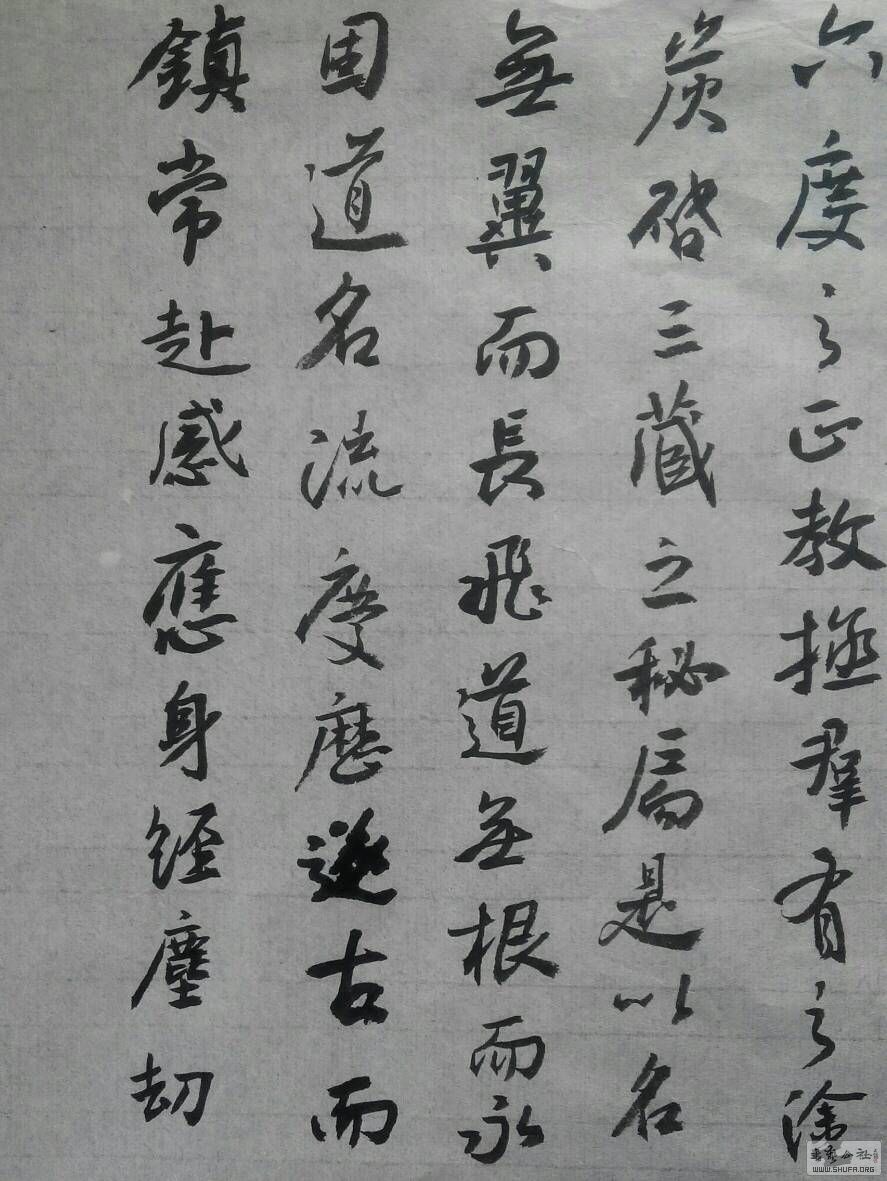 六度之正教拯羣有之塗
炭啓三藏之秘扃是以名
無翼而長飛道無根而永
固道名流慶歷遂古而
鎮常赴感應身經塵劫
書藝公社
WWW.SHUFA.ORG